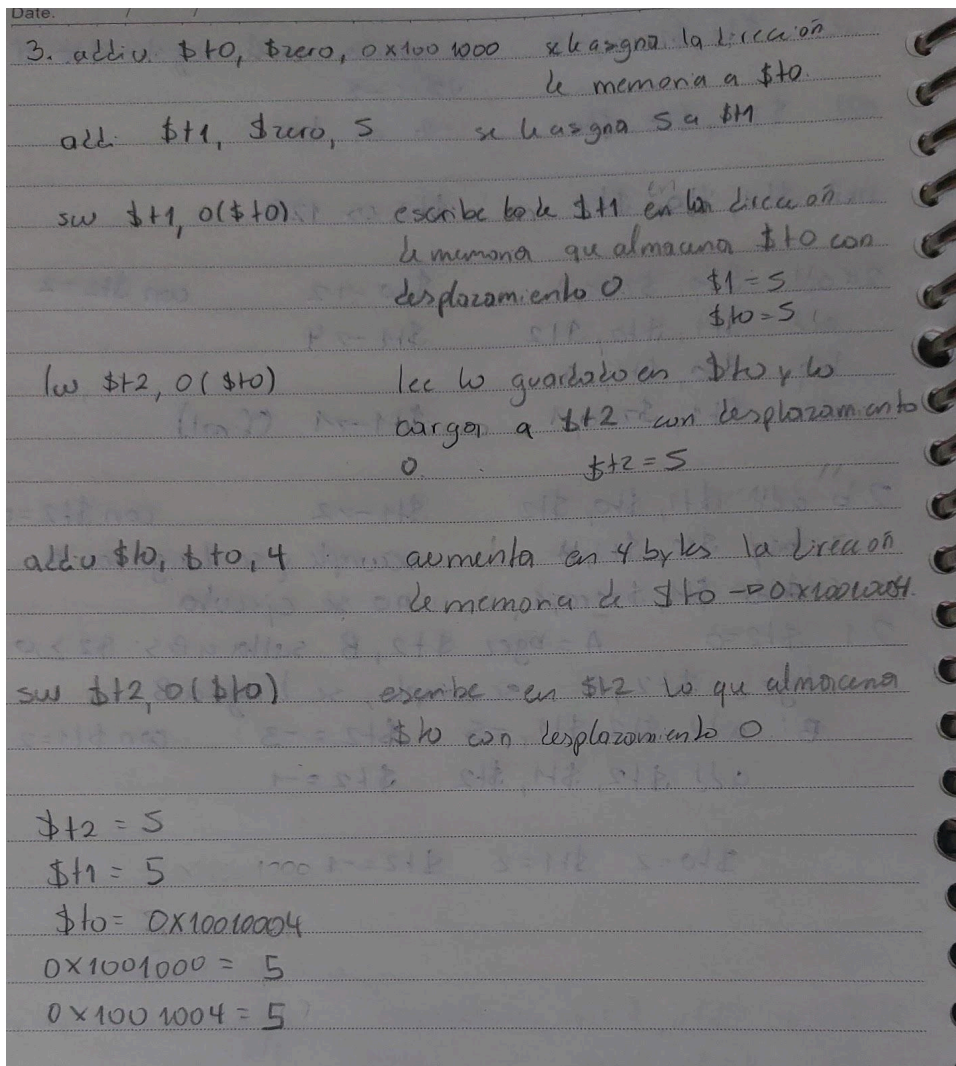 Date. / /
3. addiu $t0, $zero, 0x1001000 se le asigna la dirección
de memoria a $t0.
add. $t1, $zero, 5 se le asigna 5 a $t1
sw $t1, 0($t0) escribe lo de $t1 en la dirección
de memoria que almacena $t0 con
desplazamiento 0 $1 = 5
$t0 = 5
lw $t2, 0($t0) lee lo guardado en $t0 y lo
carga a $t2 con desplazamiento
0. $t2 = 5
addiu $t0, $t0, 4 aumenta en 4 bytes la dirección
de memoria de $t0 → 0x10010004.
sw $t2, 0($t0) escribe en $t2 lo que almacena
$t0 con desplazamiento 0
$t2 = 5
$t1 = 5
$t0 = 0x10010004
0x1001000 = 5
0x1001004 = 5